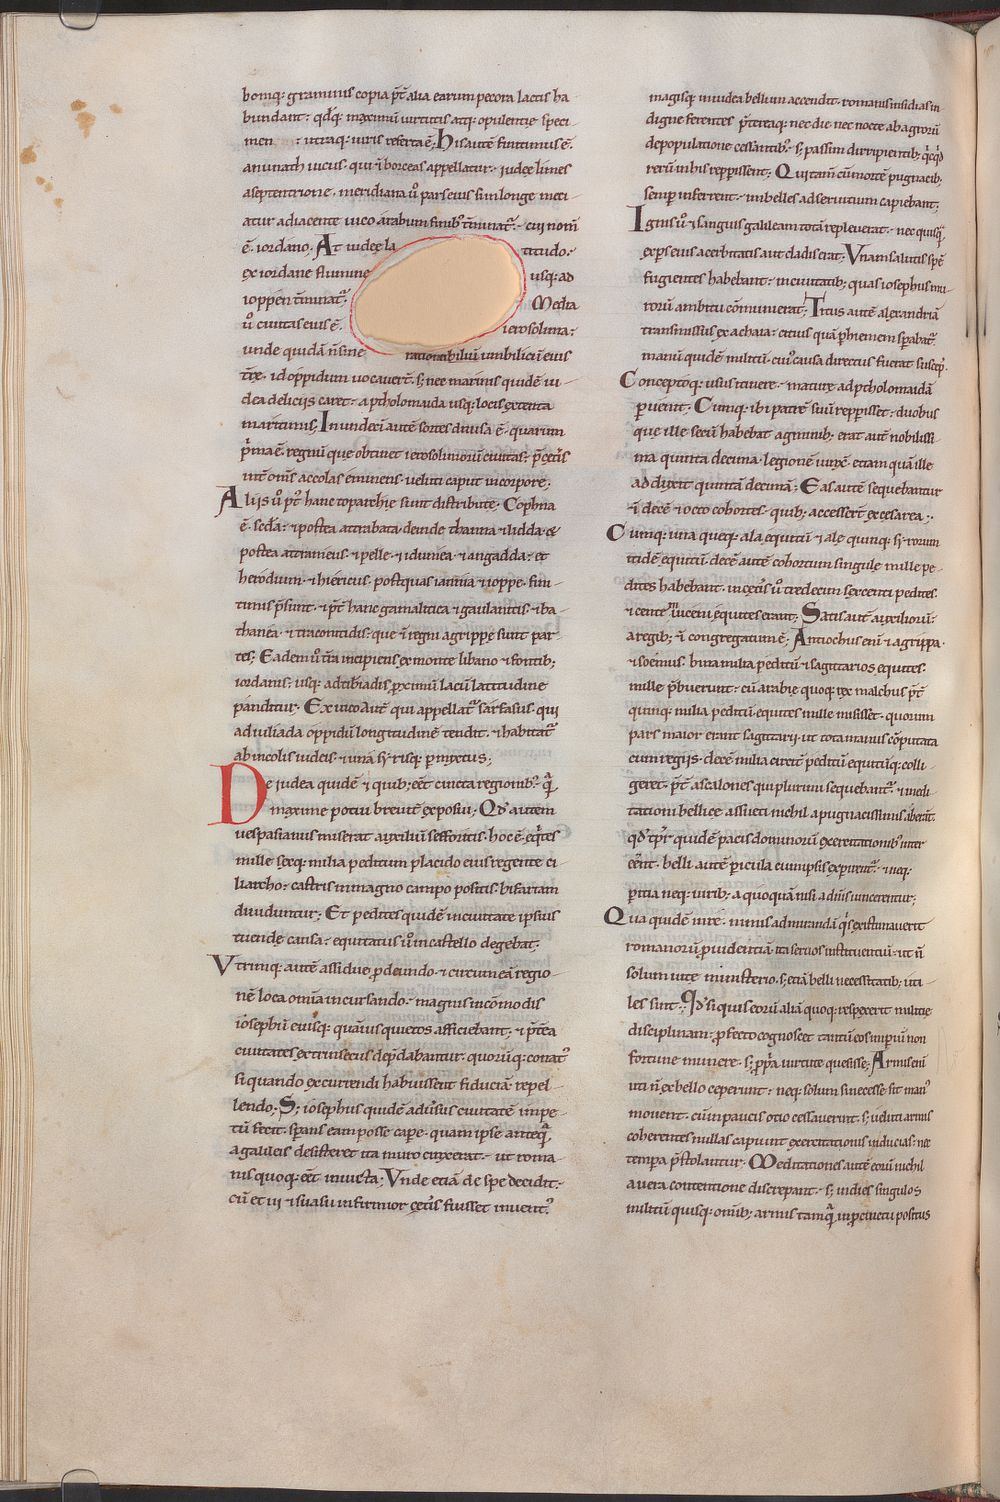 bonoq; graminis copia p̄t alia earum pecora lactis ha
bundant· qd̄q; maximū uirtutis atq; opulentie speci
men · utraq; uiris referta ē; His autē finitimus ē·
anunath uicus· qui ⁊ borceas appellatur· iudee limes
a septentrione· meridiana ũ pars eius si in longe meti
atur adiacente uico arabum finib; t̄minat᷑· cui nom̄
ē· iordano· At iudee la titudo·
ex iordane flumine usq; ad
ioppen t̄minat᷑· Media
ũ ciuitas eius ē· ierosolima·
unde quidā n̄ sine rationabiliū umbilicū eius
t̄re· id oppidum uocauer̄t· s; nec marinis quidē iu
dea deliciis caret· a ptholomaida usq; locis extenta
maritimis; In undeci autē sortes diuisa ē· quarum
p̄ma ē· regnū que obtinet ierosolimorū ciuitas· p̄ cet̄is
int̄ om̄s accolas eminens· ueluti caput in corpore;
Aliis ũ p̄t hanc toparchie sunt distribute· Cophna
ē· sed̄a· ⁊ postea atrabata deinde thanna ⁊ lidda· &
postea attameus· ⁊ pelle· ⁊ idumea· ⁊ angadda· et
herodium· ⁊ hiericus· postquas iamia ⁊ ioppe· fini
timis p̄sunt· ⁊ p̄t hanc gamalitica ⁊ gaulanitis· ⁊ ba
thanea· ⁊ traconitidis· que ⁊ regni agrippe sunt par
tes; Eadem ũ t̄ra incipiens ex monte libano ⁊ fontib;
iordanis· usq; ad tibiadis p̄ximū lacū latitudine
panditur· Ex uico autē qui appellat᷑ sarfasus· qui
ad iuliada oppidū longitudinē tendit· ⁊ habitat᷑
ab incolis iudeis· ⁊ una syrisq; p̄mixtus;
De iudea quidē ⁊ quib; eēt cincta regionib;· q̄
maxime potui breuit̄ exposui; Qd̄ autem
uespasianus miserat auxiliū sefforitis· hoc ē eq̄tes
mille sexq; milia peditum placido eius regente ci
liarcho· castris in magno campo positis· bifariam
diuiduntur; Et pedites quidē in ciuitate ipsius
tuende causa· equitatus ũ in castello degebat·
Vtrinq; autē assidue p̄deundo· ⁊ circū eā regio
nē loca omīa incursando· magnis incōmodis
iosephū eiusq; quāuis quietos afficiebant· ⁊ p̄t̄ea
ciuitates extrinsecus dep̄dabantur· quorūq; conat᷑
si quando excurrendi habuissent fiduciā repel
lendo; S; iosephus quidē adūsus ciuitatē impe
tū fecit· sperans eam posse cape· quam ipse anteq̄
a galileis desisteret ita muro cinxerat· ut roma
nis quoq; eēt inuicta; Vnde etiā de spe decidit·
cū et ui ⁊ suasu infirmior cet̄is fuisset inuent᷑·
magisq; in iudea bellum accendit· romanis insidias in
digne ferentes p̄tereaq; nec die nec nocte ab agrorū
depopulatione cessantib;· s; passim diripientib; q̄cq̄d
rerū in his reppissent; Qui tam̄ cū morte pugnacib;
semp inferrent· imbelles ad seruitium capiebant;
Ignis ũ ⁊ sanguis galileam totā repleuerat· nec quisq̄
exp̄s eius acerbitatis aut cladis erat; Vnam salutis spē
fugientes habebant· in ciuitatib; quas iosephus mu
rorū ambitu cōmunierat; Titus autē alexandriā
transmissus ex achaia· citius quā p̄ hiemem sp̄abat᷑·
manū quidē militū· cui᷒ causa directus fuerat suscep̄·
Conceptoq; usus itinere· mature ad ptholomaidā
p̄uenit· Cumq; ibi patrē suū repperisset· duobus
que ille secū habebat agminib; erat aut̄ nobilissi
ma quinta decima· legionē iunx̄· etiam quā ille
adduxit quintā decimā; Eas autē sequebantur
⁊ decē ⁊ octo cohortes· quib; accesser̄t ex cesarea;·
Cumq; una queq; ala equitū ⁊ ale quinq; syrorum
itidē equitū· decē autē cohortum singule mille pe
dites habebant· in cet̄is ũ tredecim sexcenti pedites·
⁊ cente uiceni equites erant; Satis aut̄ auxiliorū·
a regib; ⁊ congregatum ē; Antiochus eni ⁊ agrippa·
⁊ soemus· bina milia peditū ⁊ sagittarios equites·
mille p̄buerunt· cū arabie quoq; rex malchus p̄t
quinq; milia peditū equites mille misisset· quorum
pars maior erant sagittarii· ut tota manus cōputata
cum regiis· decē milia circit̄ peditū equitūq; colli
geret· p̄t ascalones qui plurimi sequebant᷑· ⁊ medi
tationi bellice assueti nichil a pugnacissimis aberāt·
qd̄ tp̄r quidē pacis dominorū exercitationib; inter
eēnt· belli autē picula cum ipsis expirent᷑· ⁊ neq;
peritia neq; uirib; a quoquā nisi a dn̄is uincerentur;
Qua quidē in re· nimis admirandā q̄s existimauerit
romanorū p̄uidentiā ita seruos instituentiū· ut n̄
solum uite ministerio· s; etiā belli necessitatib; uti
les sint· Qd̄ si quis eorū aliā quoq; respexerit militie
disciplinam· p̄fecto cognoscet tantū eos imperiū non
fortune munere· s; p̄p̄a uirtute quesisse; Armis eni
uti n̄ ex bello ceperunt· neq; solum si necesse sit man᷒
mouent· cū in paucis otio cessauerint· s; ueluti armis
coherentes nullas capiunt exercitationis inducias· nec
tempa p̄stolantur· Meditationes autē eorū nichil
a uera contentione discrepant· s; indies singulos
militū quisq; omīb; armis tamq̄ in p̄cinctu positus